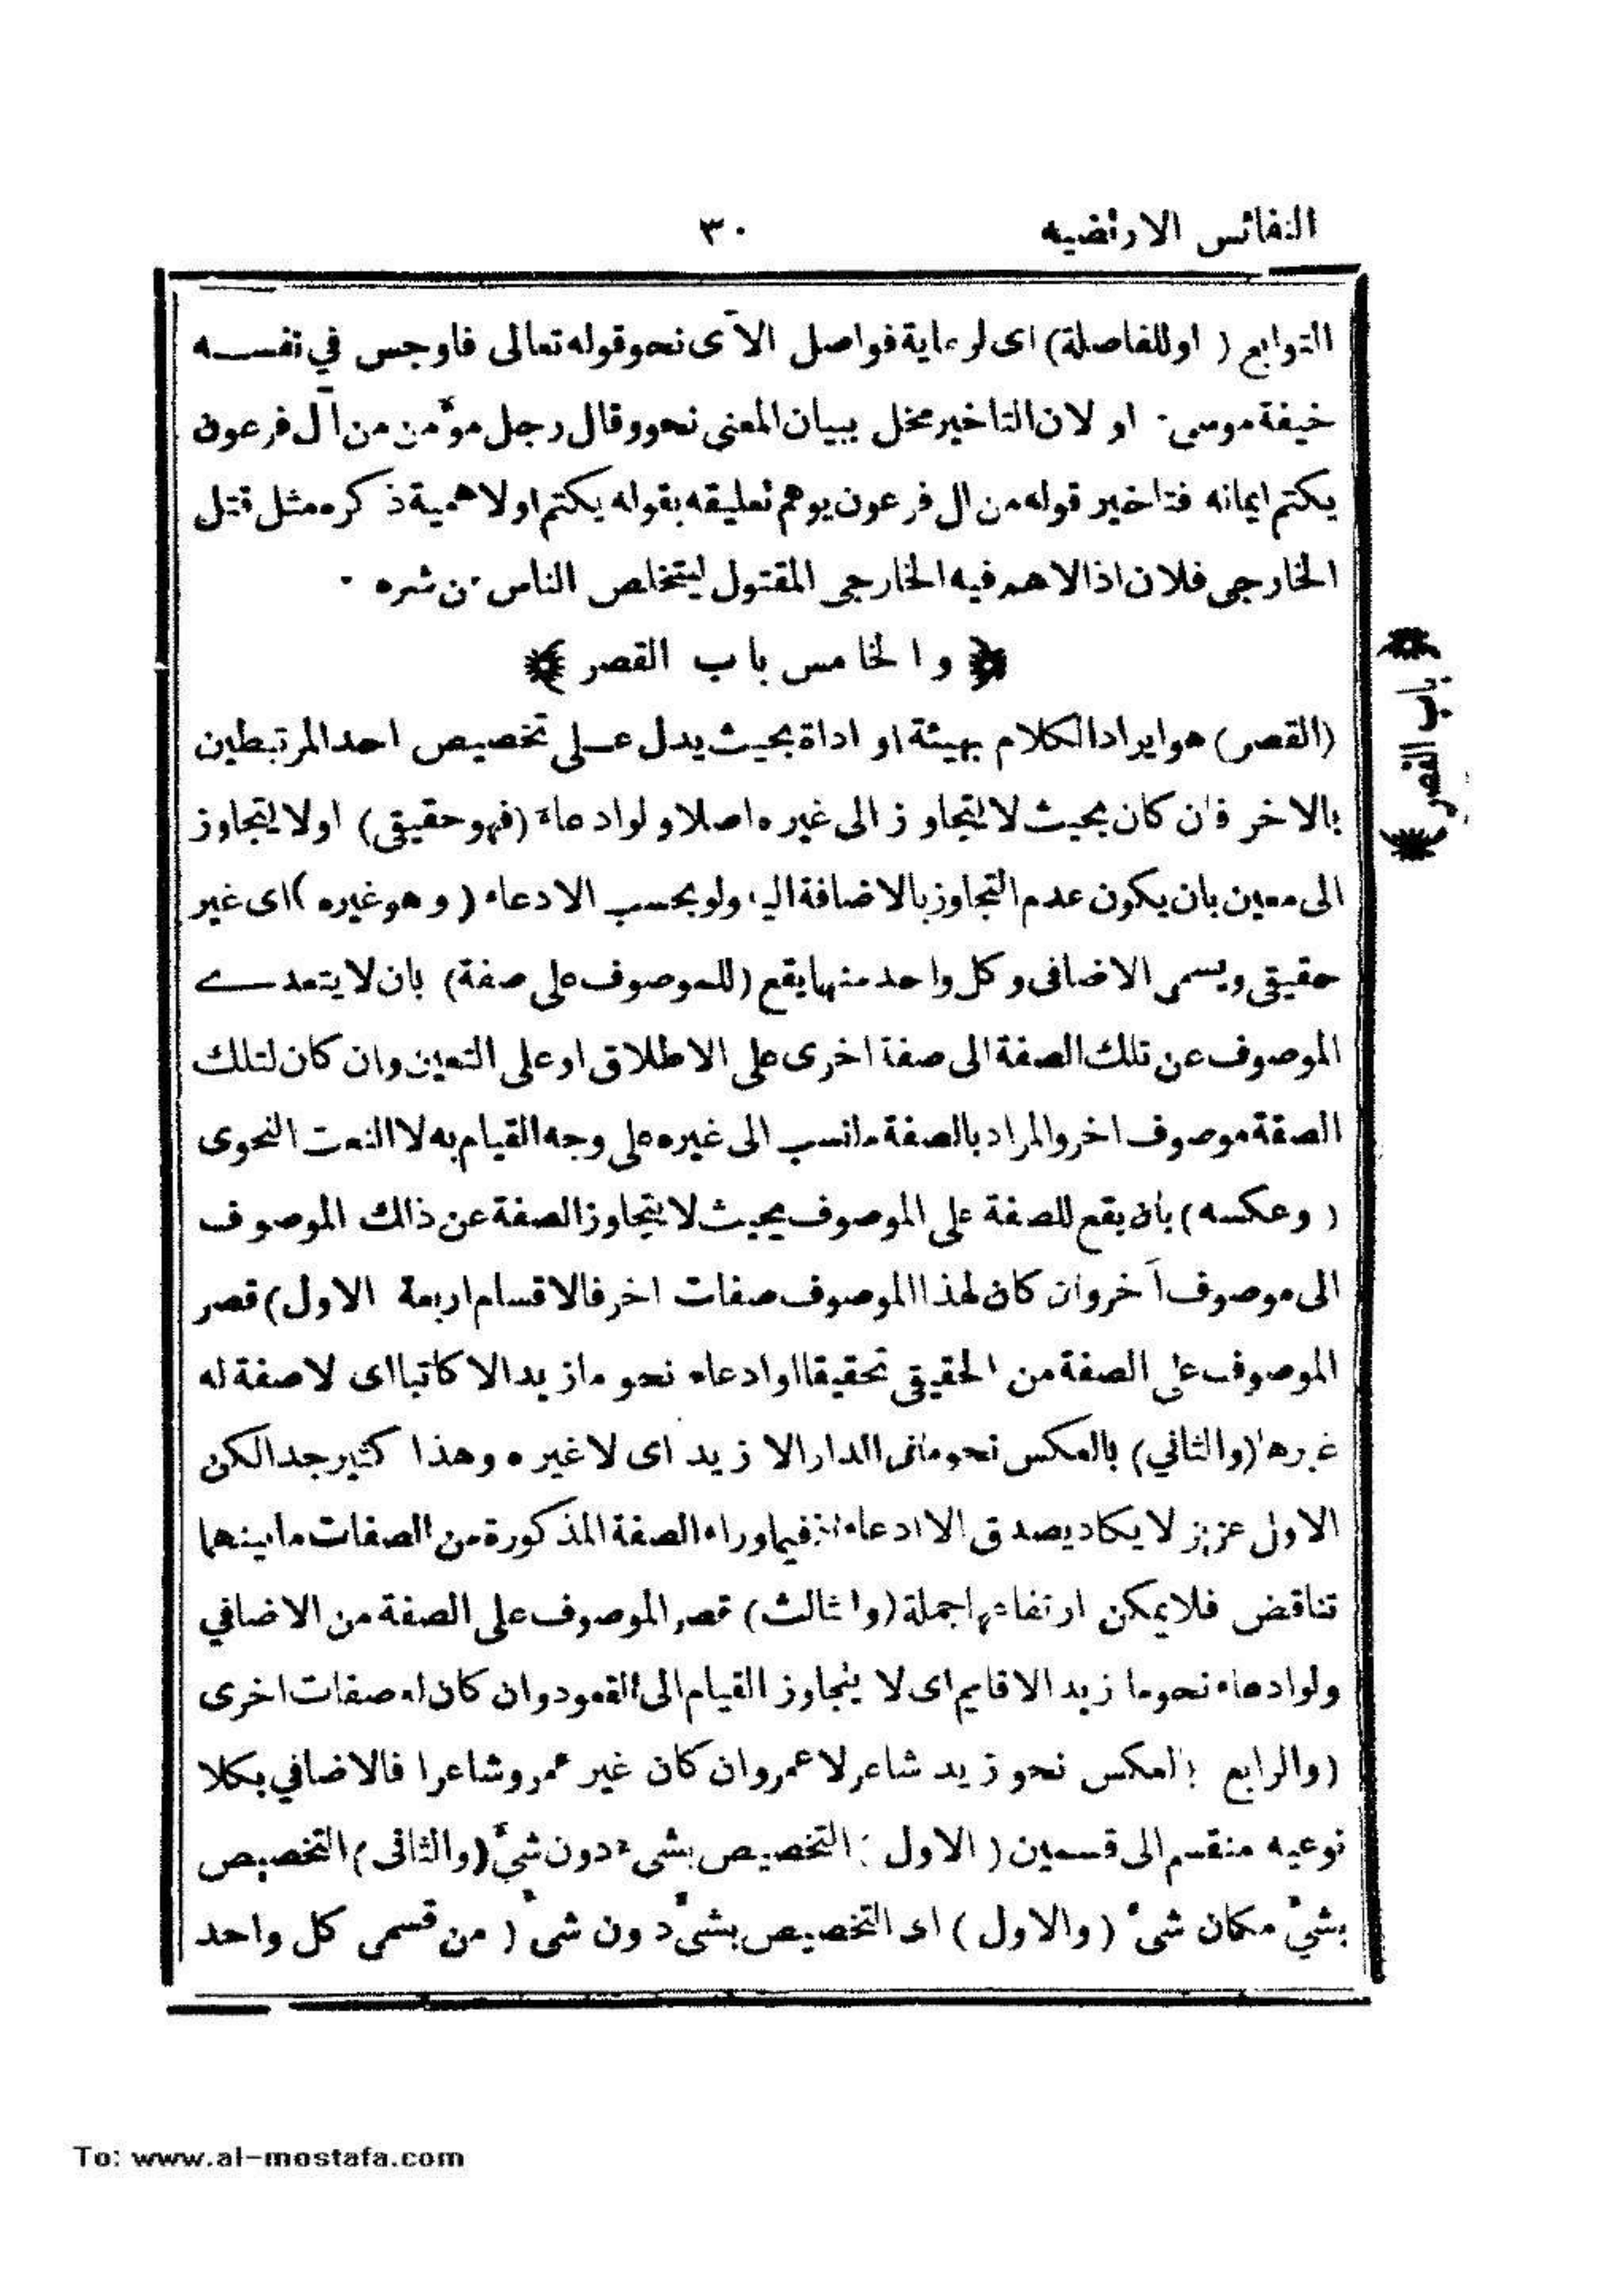 النفائس الارتضيه
٣٠
التوابع ( اوللفاصلة) اى لرعاية فواصل الآى نحوقوله تعالى فاوجس في نفسه
خيفة موسى٠ او لان التاخير مخل ببيان المعنى نحووقال رجل مؤمن من آل فرعون
يكتم ايمانه فتاخير قوله من ال فرعون يوهم تعليقه بقوله يكتم اولاهمية ذكره مثل قتل
الخارجى فلان اذالاهم فيه الخارجى المقتول ليتخلص الناس من شره ٠
﴿ والخامس باب القصر ﴾
﴿ باب القصر ﴾
(القصر) هوايرادالكلام بهيئة او اداة بحيث يدل على تخصيص احدالمرتبطين
بالاخر فان كان بحيث لايتجاوز الى غيره اصلاو لوادعاء (فهوحقيقى) اولايتجاوز
الى معين بان يكون عدم التجاوزبالاضافة اليه ولوبحسب الادعاء ( وهوغيره )اى غير
حقيقى ويسمى الاضافى وكل واحد منهايقع (للموصوف على صفة) بان لايتعدے
الموصوف عن تلك الصفة الى صفة اخرى على الاطلاق اوعلى التعين وان كان لتلك
الصفة موصوف اخروالمراد بالصفة مانسب الى غيره على وجه القيام به لاالنعت النحوى
( وعكسه ) بأن يقع للصفة على الموصوف بحيث لايتجاوزالصفة عن ذالك الموصوف
الى موصوف آخروان كان لهذاالموصوف صفات اخر فالاقسام اربعة الاول) قصر
الموصوف على الصفة من الحقيقى تحقيقااوادعاء نحو مازيدالاكاتبااى لاصفة له
غيرها (والثاني) بالعكس نحومافى الدارالا زيد اى لاغيره وهذا كثيرجدالكن
الاول عزيز لايكاديصدق الاادعاء فيماوراء الصفة المذكورة من الصفات مابينهما
تناقض فلايمكن ارتفاعهاجملة (والثالث) قصر الموصوف على الصفة من الاضافي
ولوادعاء نحوما زيد الاقايم اى لا يتجاوز القيام الى القعودوان كان له صفات اخرى
(والرابع بالعكس نحو زيد شاعر لاعمروان كان غير عمروشاعرا فالاضافي بكلا
نوعيه منقسم الى قسمين ( الاول ) التخصيص بشىء دون شىء (والثانى) التخصيص
بشىء مكان شىء ( والاول ) اى التخصيص بشىء دون شىء ( من قسمى كل واحد
To: www.al-mostafa.com